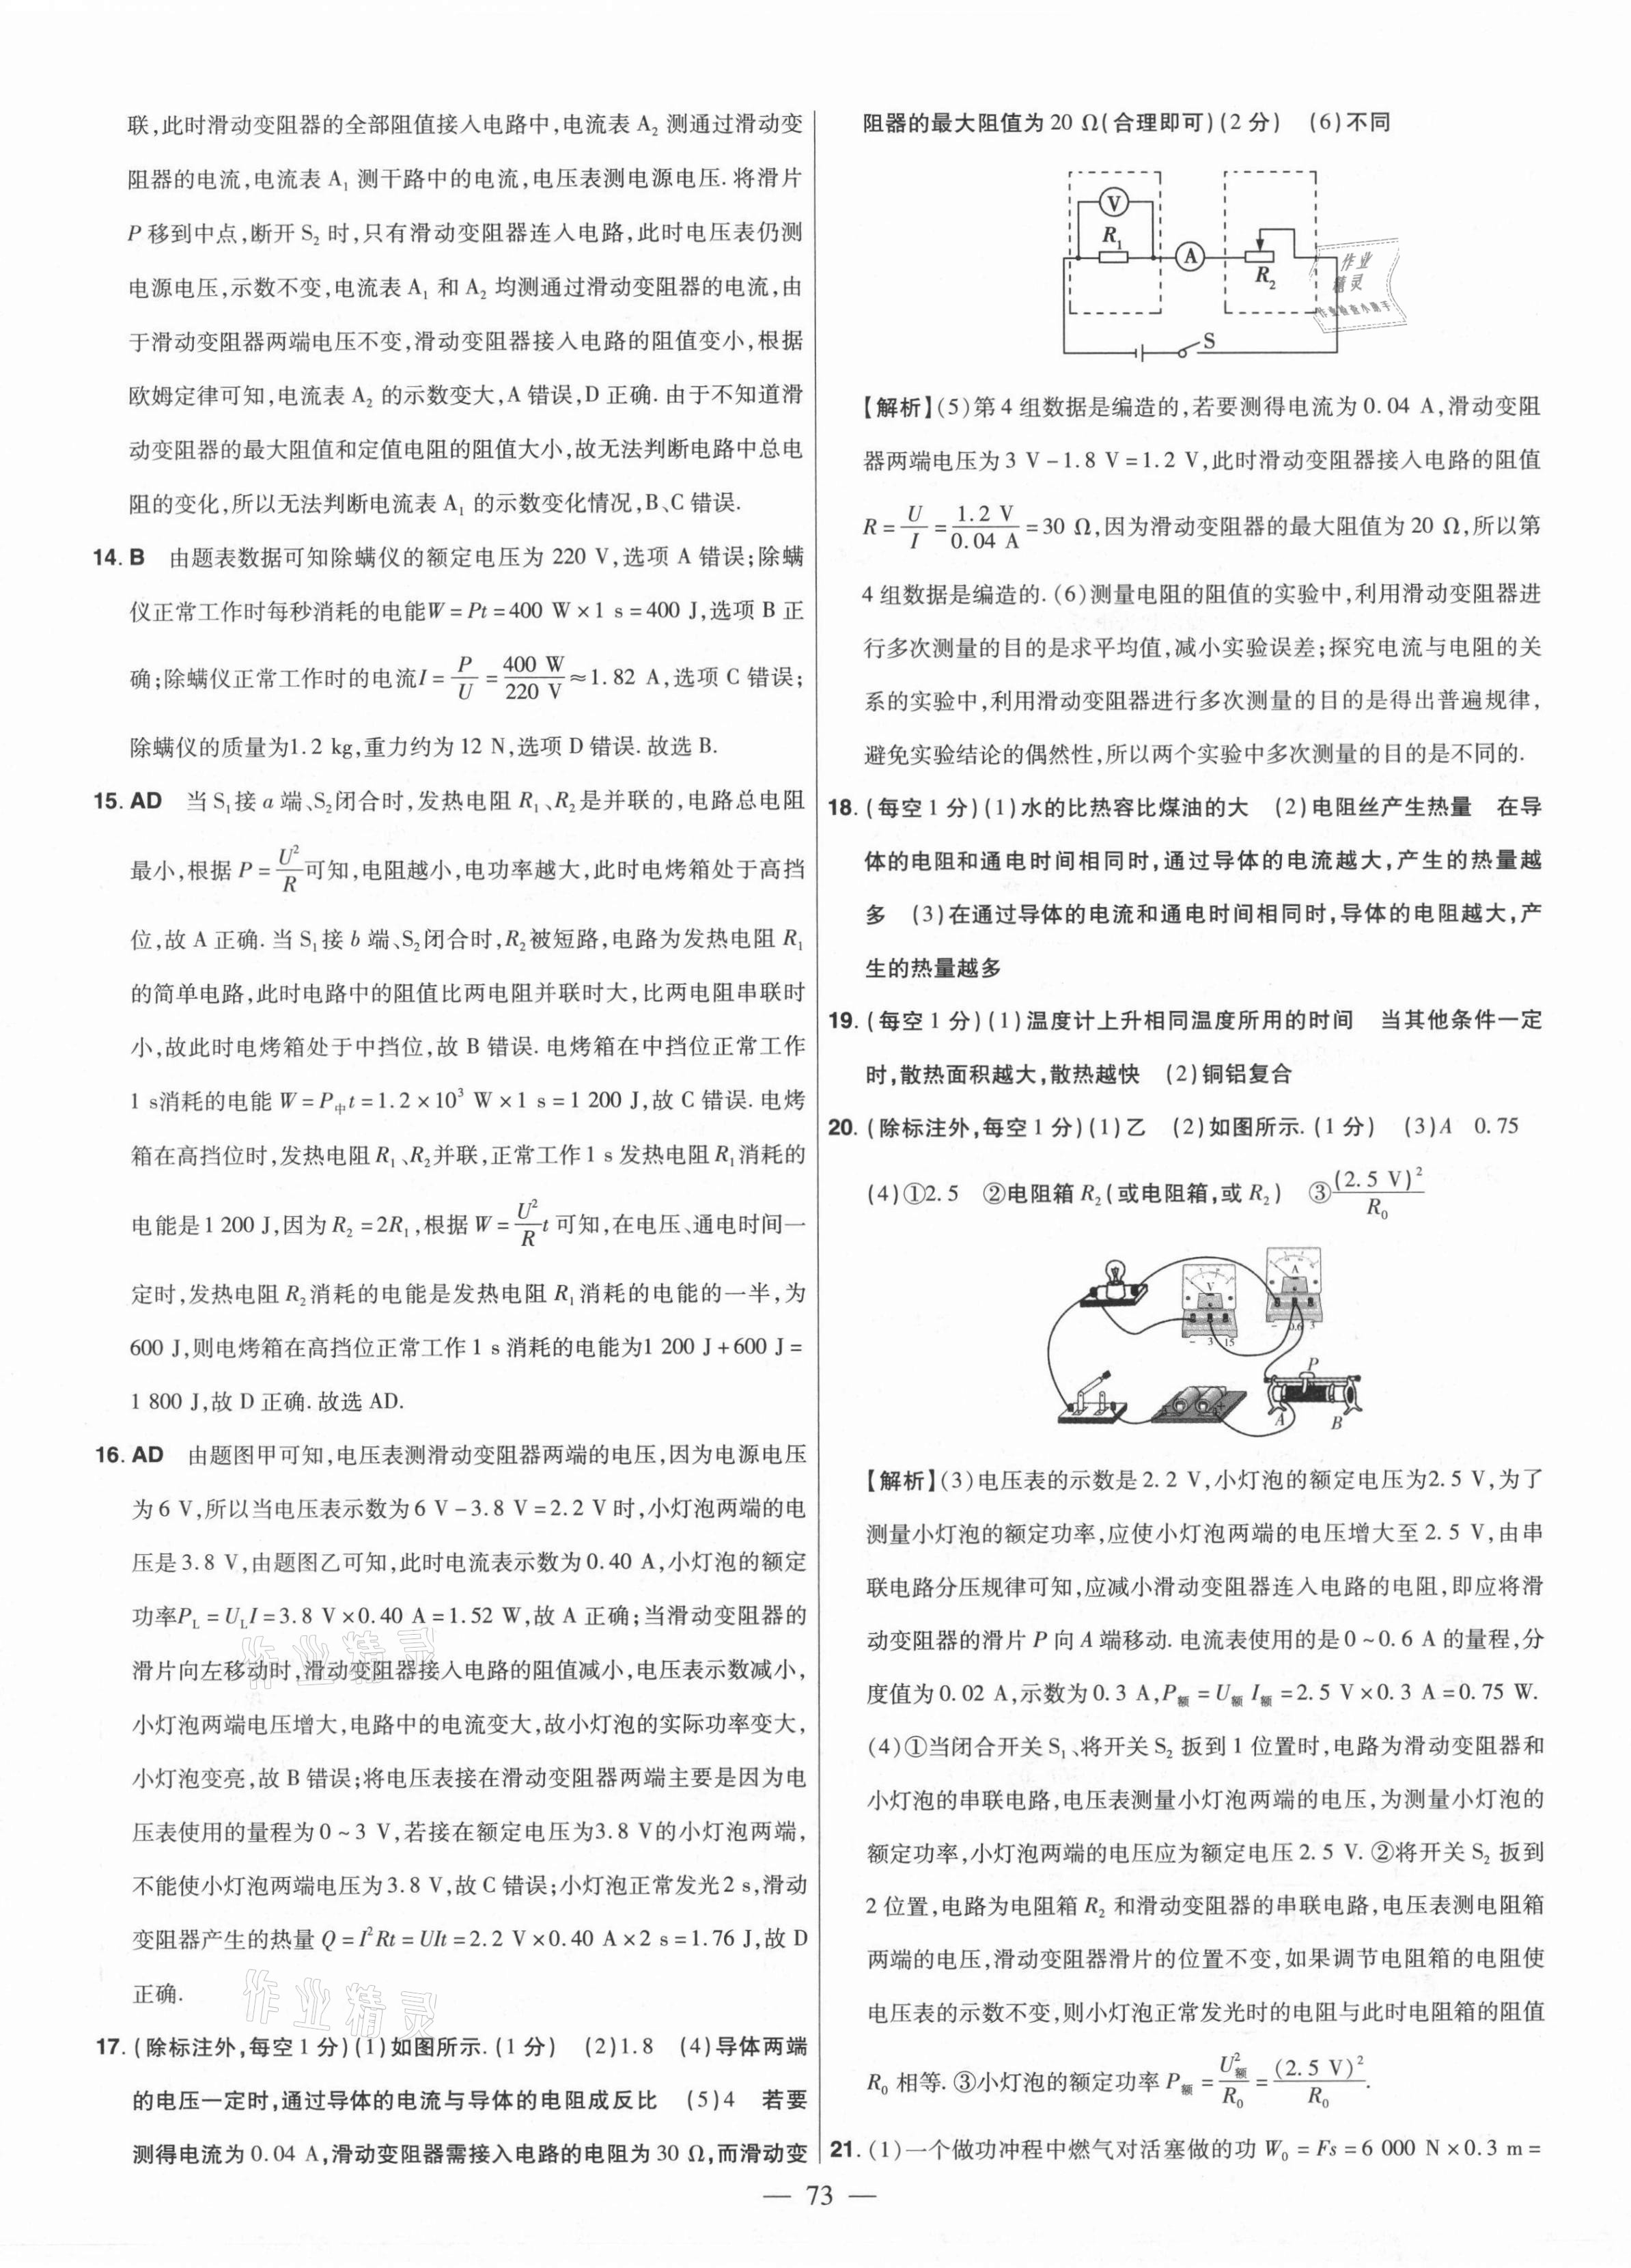 联,此时滑动变阻器的全部阻值接入电路中,电流表 A₂ 测通过滑动变
阻器的电流,电流表 A₁ 测干路中的电流,电压表测电源电压. 将滑片
P 移到中点,断开 S₂ 时,只有滑动变阻器连入电路,此时电压表仍测
电源电压,示数不变,电流表 A₁ 和 A₂ 均测通过滑动变阻器的电流,由
于滑动变阻器两端电压不变,滑动变阻器接入电路的阻值变小,根据
欧姆定律可知,电流表 A₂ 的示数变大,A 错误,D 正确. 由于不知道滑
动变阻器的最大阻值和定值电阻的阻值大小,故无法判断电路中总电
阻的变化,所以无法判断电流表 A₁ 的示数变化情况,B、C 错误.
14. B 由题表数据可知除螨仪的额定电压为 220 V,选项 A 错误;除螨
仪正常工作时每秒消耗的电能W = Pt = 400 W × 1 s = 400 J,选项 B 正
确;除螨仪正常工作时的电流I = P/U = 400 W/220 V ≈ 1.82 A,选项 C 错误;
除螨仪的质量为1.2 kg,重力约为 12 N,选项 D 错误. 故选 B.
15. AD 当 S₁接 a 端、S₂闭合时,发热电阻 R₁、R₂是并联的,电路总电阻
最小,根据 P = U²/R可知,电阻越小,电功率越大,此时电烤箱处于高挡
位,故 A 正确. 当 S₁接 b 端、S₂闭合时,R₂被短路,电路为发热电阻 R₁
的简单电路,此时电路中的阻值比两电阻并联时大,比两电阻串联时
小,故此时电烤箱处于中挡位,故 B 错误. 电烤箱在中挡位正常工作
1 s消耗的电能 W = P中t = 1.2 × 10³ W × 1 s = 1 200 J,故 C 错误. 电烤
箱在高挡位时,发热电阻 R₁、R₂并联,正常工作 1 s 发热电阻 R₁消耗的
电能是 1 200 J,因为 R₂ = 2R₁,根据 W = U²/R t 可知,在电压、通电时间一
定时,发热电阻 R₂消耗的电能是发热电阻 R₁消耗的电能的一半,为
600 J,则电烤箱在高挡位正常工作 1 s 消耗的电能为1 200 J + 600 J =
1 800 J,故 D 正确. 故选 AD.
16. AD 由题图甲可知,电压表测滑动变阻器两端的电压,因为电源电压
为 6 V,所以当电压表示数为 6 V - 3.8 V = 2.2 V 时,小灯泡两端的电
压是 3.8 V,由题图乙可知,此时电流表示数为 0.40 A,小灯泡的额定
功率P_L = U_L I = 3.8 V × 0.40 A = 1.52 W,故 A 正确;当滑动变阻器的
滑片向左移动时,滑动变阻器接入电路的阻值减小,电压表示数减小,
小灯泡两端电压增大,电路中的电流变大,故小灯泡的实际功率变大,
小灯泡变亮,故 B 错误;将电压表接在滑动变阻器两端主要是因为电
压表使用的量程为 0 ~ 3 V,若接在额定电压为3.8 V的小灯泡两端,
不能使小灯泡两端电压为 3.8 V,故 C 错误;小灯泡正常发光 2 s,滑动
变阻器产生的热量 Q = I²Rt = UIt = 2.2 V × 0.40 A × 2 s = 1.76 J,故 D
正确.
17. (除标注外,每空 1 分)(1)如图所示. (1 分) (2)1.8 (4)导体两端
的电压一定时,通过导体的电流与导体的电阻成反比 (5)4 若要
测得电流为 0.04 A,滑动变阻器需接入电路的电阻为 30 Ω,而滑动变
阻器的最大阻值为 20 Ω(合理即可)(2 分) (6)不同
V
R₁
A
R₂
S
作业
精灵
作业检查小助手
【解析】(5)第 4 组数据是编造的,若要测得电流为 0.04 A,滑动变阻
器两端电压为 3 V - 1.8 V = 1.2 V,此时滑动变阻器接入电路的阻值
R = U/I = 1.2 V/0.04 A = 30 Ω,因为滑动变阻器的最大阻值为 20 Ω,所以第
4 组数据是编造的. (6)测量电阻的阻值的实验中,利用滑动变阻器进
行多次测量的目的是求平均值,减小实验误差;探究电流与电阻的关
系的实验中,利用滑动变阻器进行多次测量的目的是得出普遍规律,
避免实验结论的偶然性,所以两个实验中多次测量的目的是不同的.
18. (每空 1 分)(1)水的比热容比煤油的大 (2)电阻丝产生热量 在导
体的电阻和通电时间相同时,通过导体的电流越大,产生的热量越
多 (3)在通过导体的电流和通电时间相同时,导体的电阻越大,产
生的热量越多
19. (每空 1 分)(1)温度计上升相同温度所用的时间 当其他条件一定
时,散热面积越大,散热越快 (2)铜铝复合
20. (除标注外,每空 1 分)(1)乙 (2)如图所示. (1 分) (3)A 0.75
(4)①2.5 ②电阻箱 R₂(或电阻箱,或 R₂) ③(2.5 V)²/R₀
V
A
- 3 15
- 0.6 3
P
A
B
【解析】(3)电压表的示数是 2.2 V,小灯泡的额定电压为2.5 V,为了
测量小灯泡的额定功率,应使小灯泡两端的电压增大至 2.5 V,由串
联电路分压规律可知,应减小滑动变阻器连入电路的电阻,即应将滑
动变阻器的滑片 P 向 A 端移动. 电流表使用的是 0 ~ 0.6 A 的量程,分
度值为 0.02 A,示数为 0.3 A,P额 = U额 I额 = 2.5 V × 0.3 A = 0.75 W.
(4)①当闭合开关 S₁、将开关 S₂ 扳到 1 位置时,电路为滑动变阻器和
小灯泡的串联电路,电压表测量小灯泡两端的电压,为测量小灯泡的
额定功率,小灯泡两端的电压应为额定电压 2.5 V. ②将开关 S₂ 扳到
2 位置,电路为电阻箱 R₂ 和滑动变阻器的串联电路,电压表测电阻箱
两端的电压,滑动变阻器滑片的位置不变,如果调节电阻箱的电阻使
电压表的示数不变,则小灯泡正常发光时的电阻与此时电阻箱的阻值
R₀ 相等. ③小灯泡的额定功率 P额 = U额²/R₀ = (2.5 V)²/R₀.
21. (1)一个做功冲程中燃气对活塞做的功 W₀ = Fs = 6 000 N × 0.3 m =
— 73 —
作业精灵
作业精灵